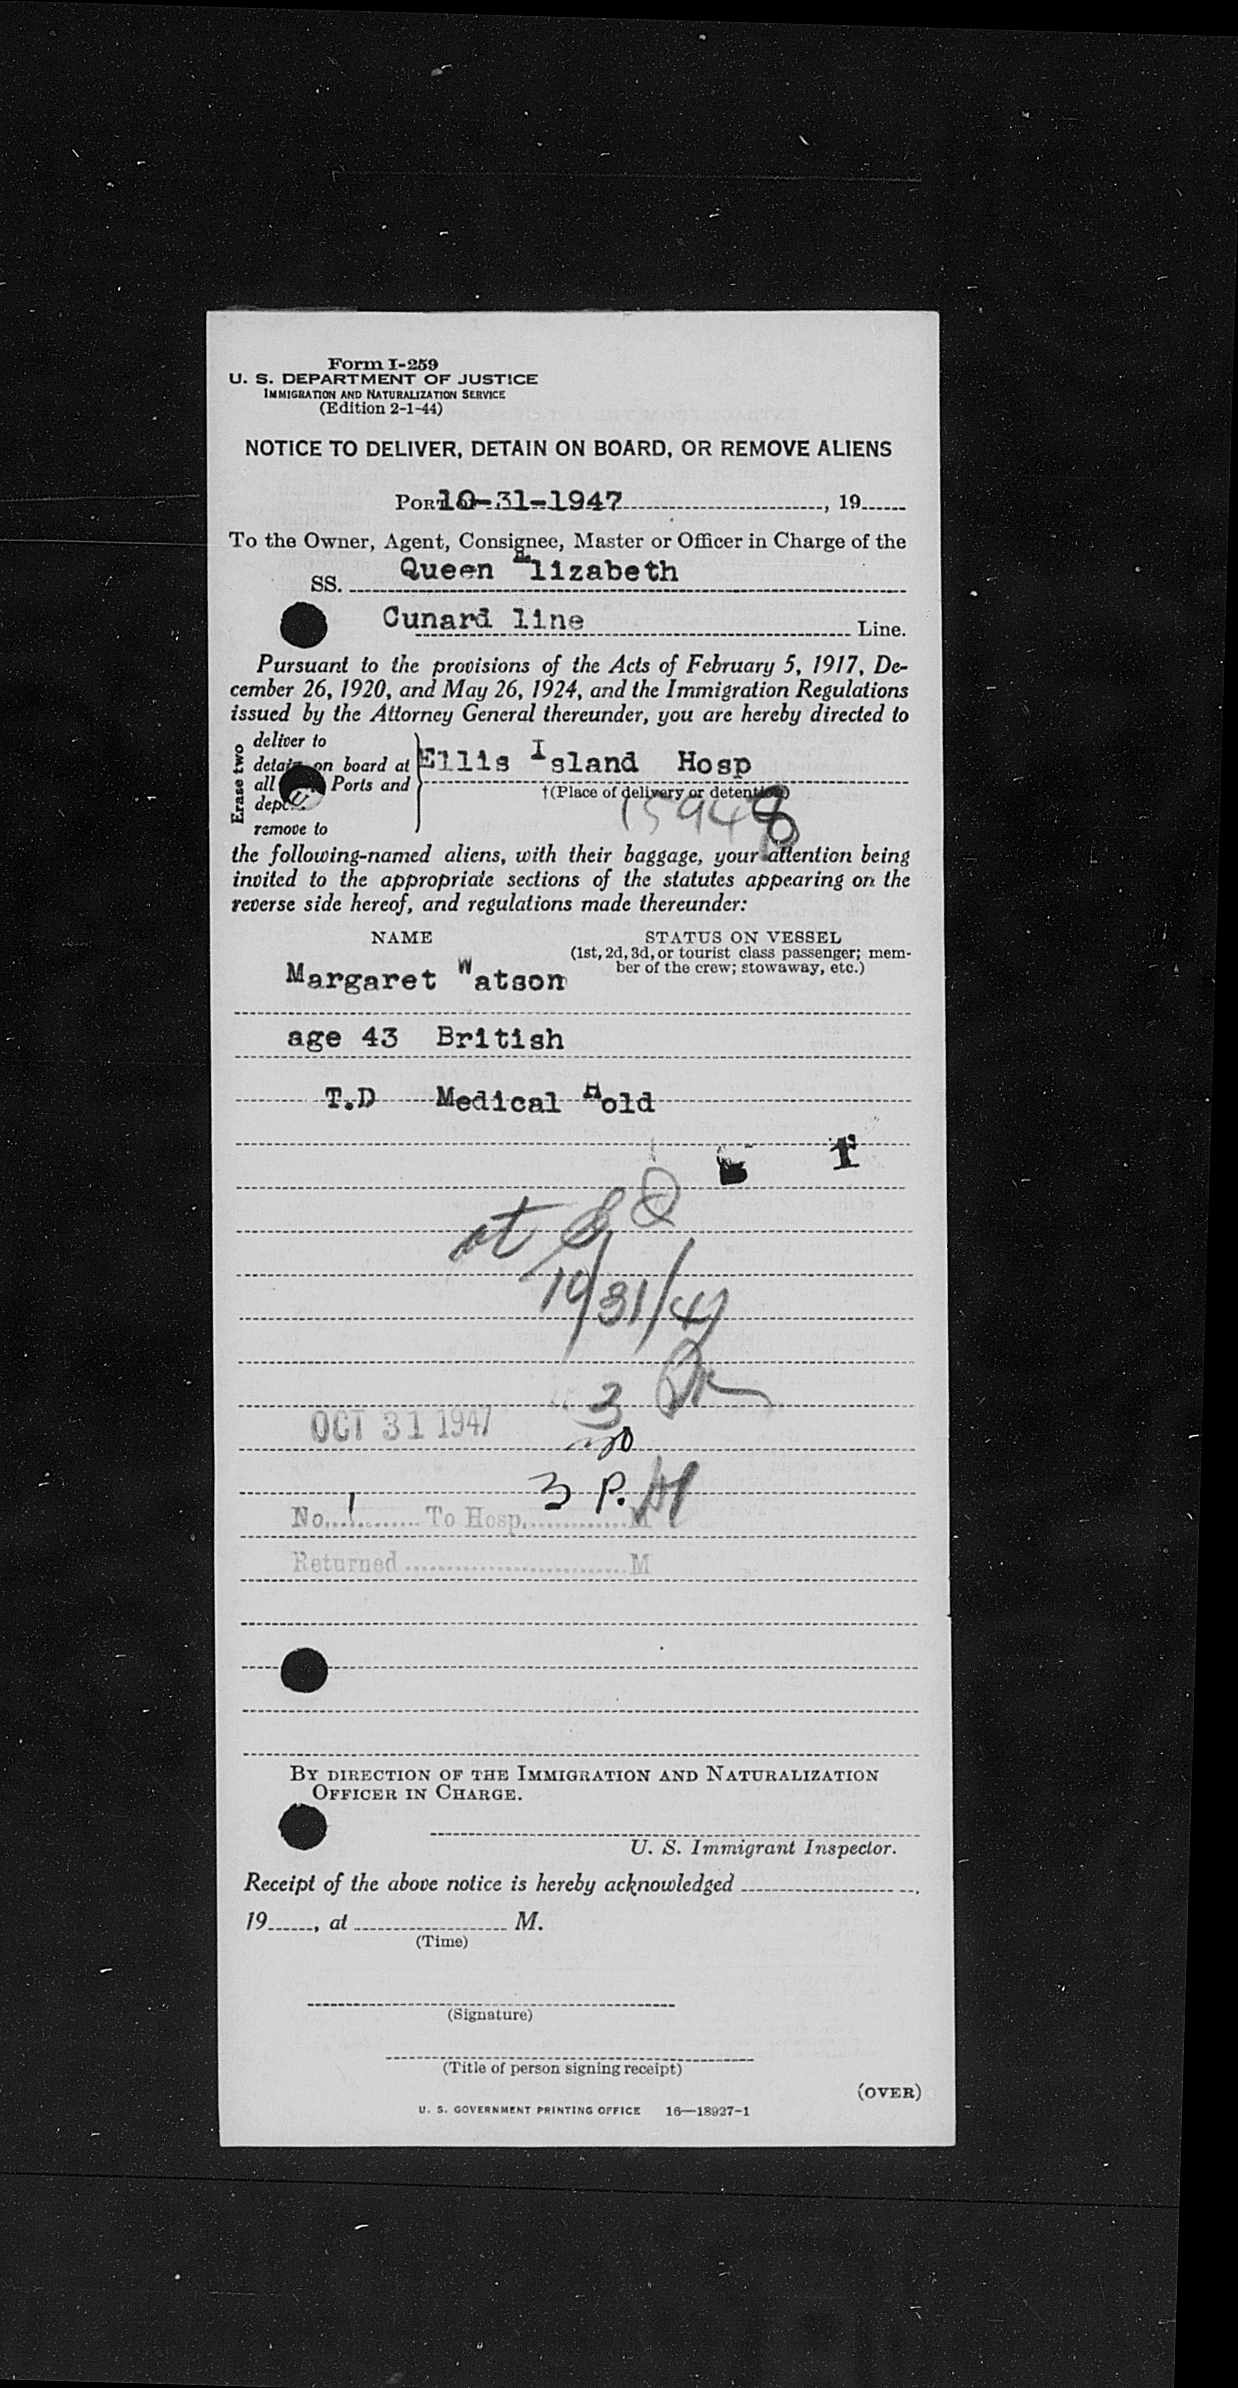 Form I-259
U. S. DEPARTMENT OF JUSTICE
IMMIGRATION AND NATURALIZATION SERVICE
(Edition 2-1-44)
NOTICE TO DELIVER, DETAIN ON BOARD, OR REMOVE ALIENS
PORT 10-31-1947, 19
To the Owner, Agent, Consignee, Master or Officer in Charge of the
SS. Queen Elizabeth
Cunard line Line.
Pursuant to the provisions of the Acts of February 5, 1917, De-
cember 26, 1920, and May 26, 1924, and the Immigration Regulations
issued by the Attorney General thereunder, you are hereby directed to
Erase two
deliver to
detain on board at
all Ports and
remove to
Ellis Island Hosp
†(Place of delivery or detention)
the following-named aliens, with their baggage, your attention being
invited to the appropriate sections of the statutes appearing on the
reverse side hereof, and regulations made thereunder:
NAME STATUS ON VESSEL
(1st, 2d, 3d, or tourist class passenger; mem-
ber of the crew; stowaway, etc.)
Margaret Watson
age 43 British
T.D Medical Hold
at
10/31/47
3
OCT 31 1947
3 P.
No. 1 To Hosp. M
Returned M
BY DIRECTION OF THE IMMIGRATION AND NATURALIZATION
OFFICER IN CHARGE.
U. S. Immigrant Inspector.
Receipt of the above notice is hereby acknowledged
19, at M.
(Time)
(Signature)
(Title of person signing receipt)
(OVER)
U. S. GOVERNMENT PRINTING OFFICE 16—18927-1